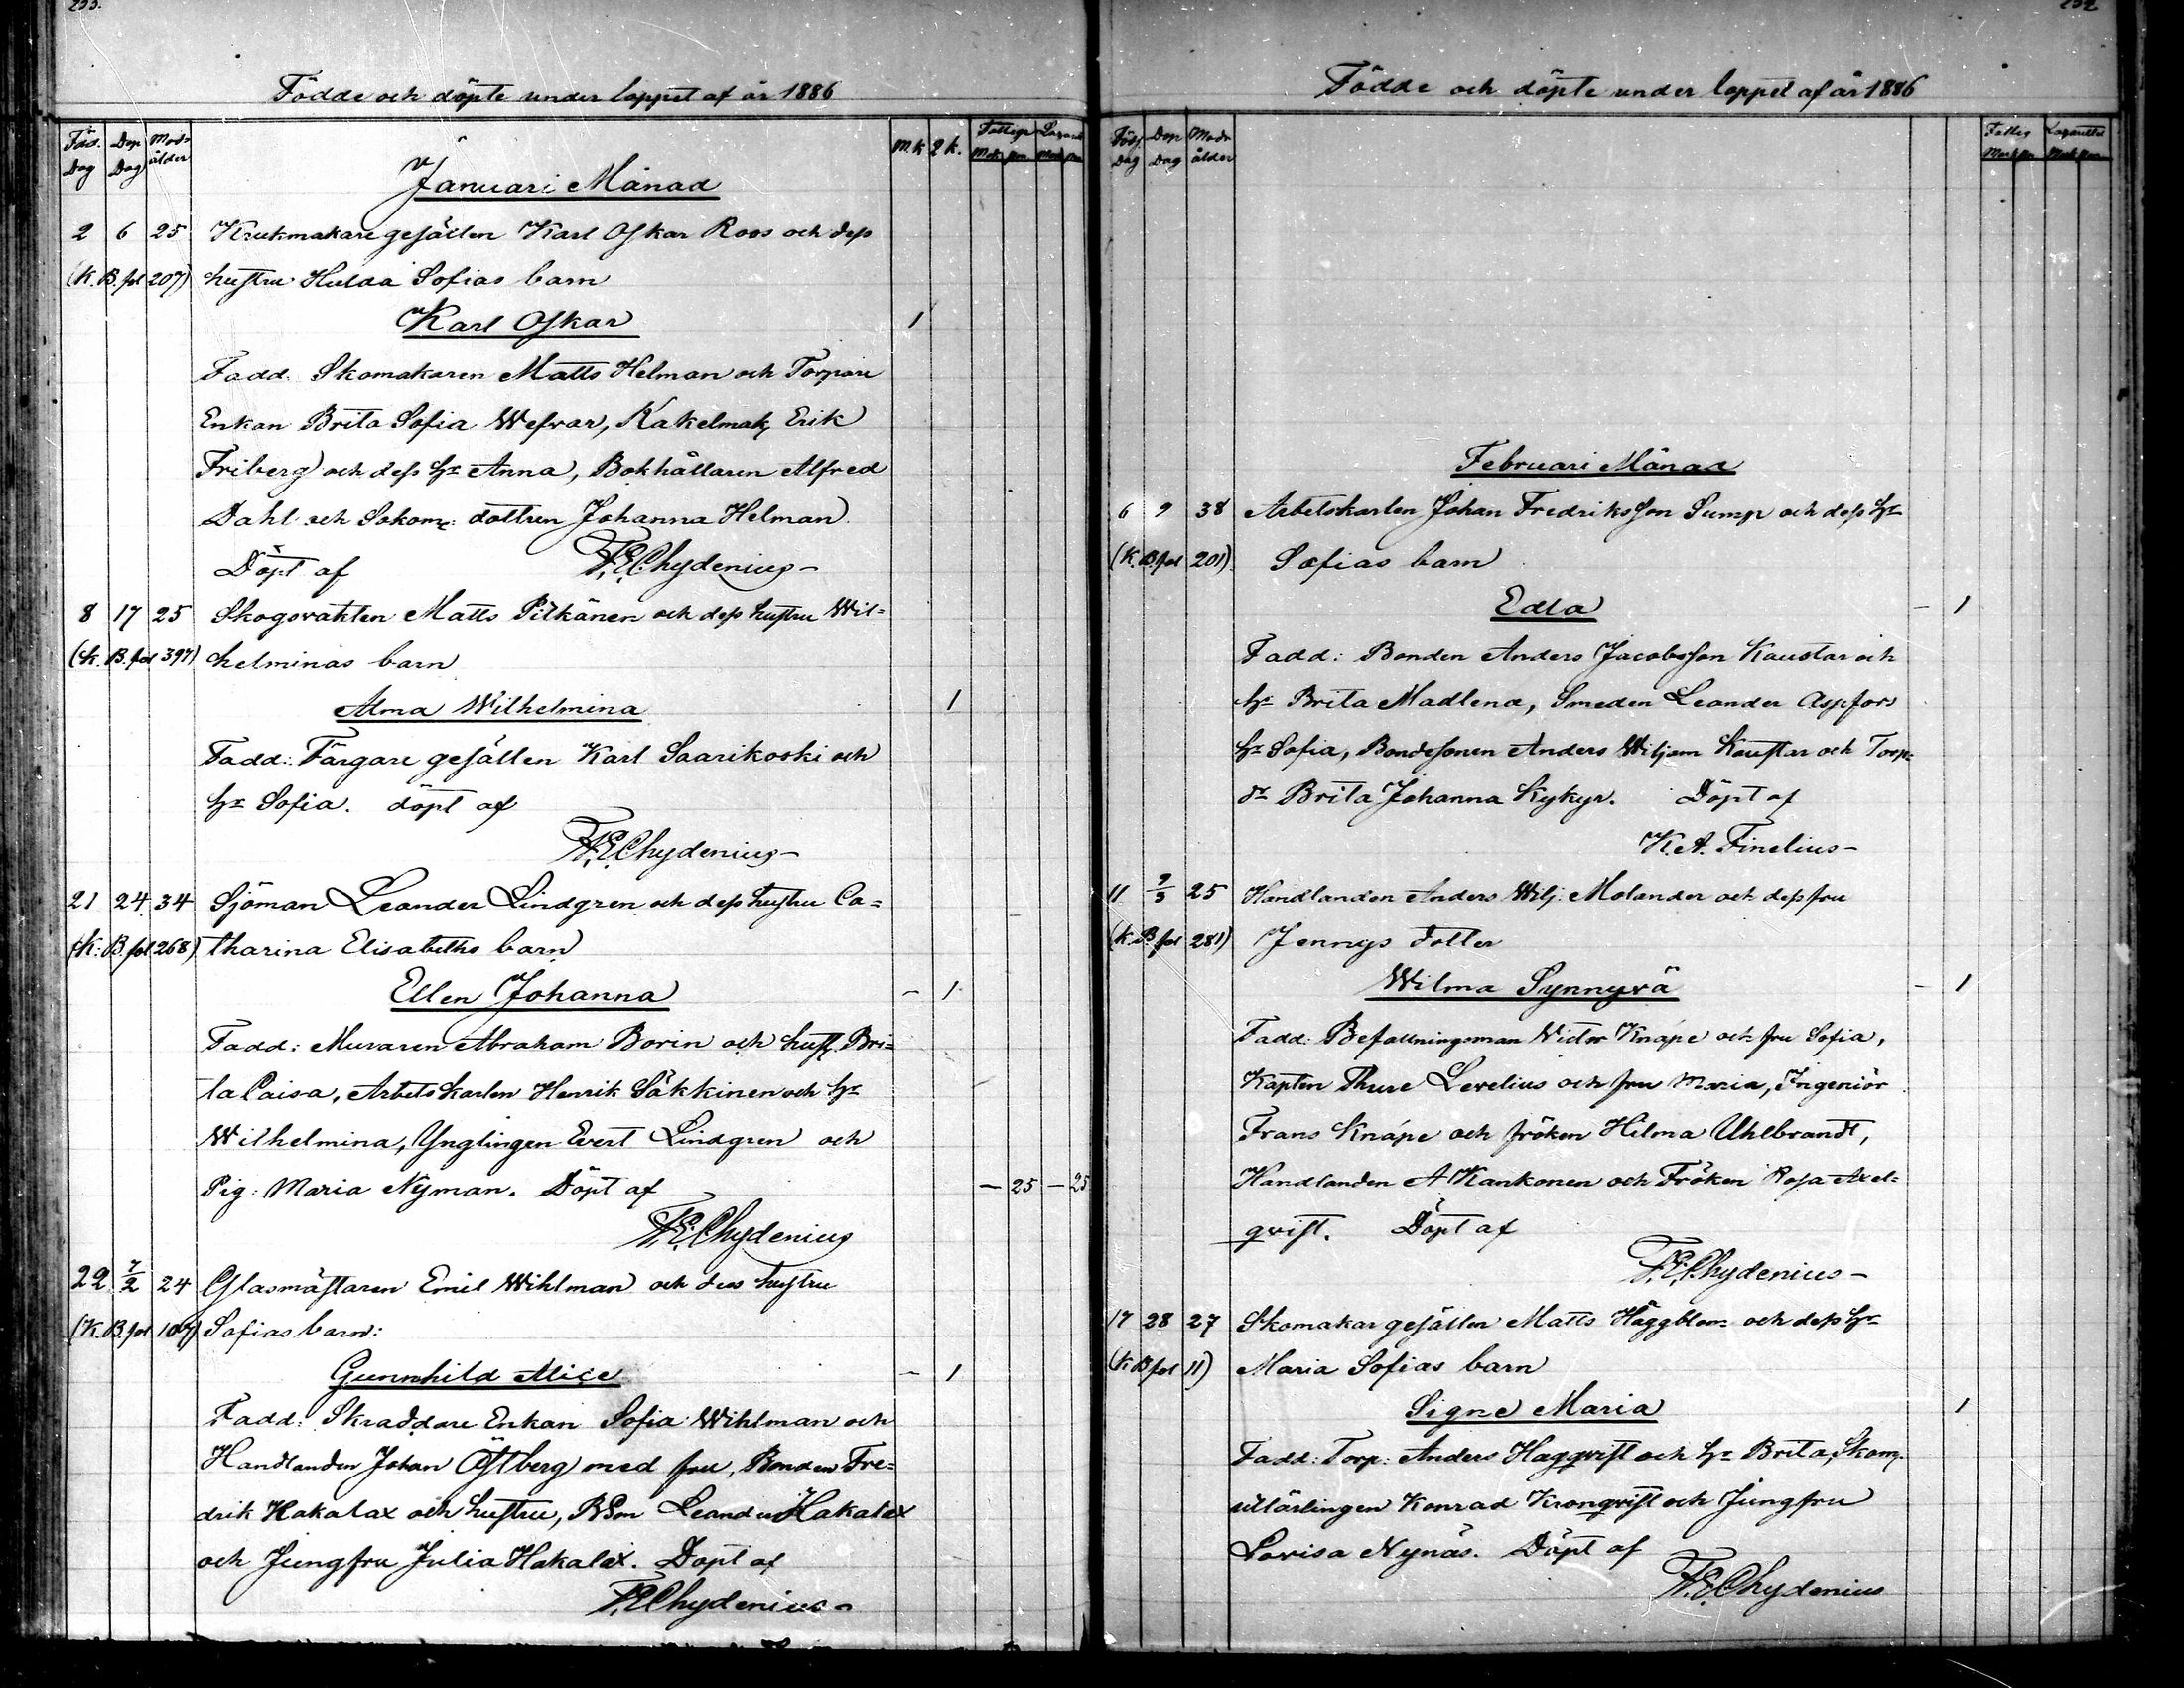 Födde och döpte under loppet af år 1886
Föd. Dag Dop Dag Mod. ålder M.k Q k. Fattige Mark pen Lazaret Mark pen
Januari Månad
2 6 25 Krukmakaregesällen Karl Oskar Roos och dess
(K. B. fol 207) hustru Hulda Sofias barn
Karl Oskar 1
Fadd. Skomakaren Matts Helman och Torpare
Enkan Brita Sofia Wefvar, Kakelmak. Erik
Friberg och dess hr Anna, Bokhållaren Alfred
Dahl och Skom: dottren Johanna Helman.
Döpt af F.E.Chydenius
8 17 25 Skogsvakten Matts Pitkänen och dess hustru Wil=
(K. B. fol 397) helminas barn
Alma Wilhelmina 1
Fadd: Färgare gesällen Karl Saarikoski och
hr Sofia. döpt af
F.E.Chydenius
21 24 34 Sjöman Leander Lindgren och dess hustru Ca=
(K: B. fol 268) tharina Elisabeths barn
Ellen Johanna — 1
Fadd: Muraren Abraham Borin och hust. Bri=
ta Caisa, Arbetskarlen Henrik Säkkinen och hr
Wilhelmina, Ynglingen Evert Lindgren och
Pig: Maria Nyman. Döpt af — 25 — 25
F.E.Chydenius
22 7/2 24 Glasmästaren Emil Wihlman och dess hustru
(K. B. fol 107) Sofias barn:
Gunnhild Alice — 1
Fadd: Skraddare Enkan Sofia Wihlman och
Handlanden Johan Östberg med fru, Bonden Fre=
drik Hakalax och hustru, BSon Leander Hakalax
och Jungfru Julia Hakalax. Dopt af
F.E.Chydenius
Födde och döpte under loppet af år 1886
Föd. Dag Dop Dag Modr ålder Fattig Mark pen Lazarettet Mark pen
Februari Månad
6 9 38 Arbetskarlen Johan Fredriksson Sump och dess hr
(K. B. fol 201) Sofias barn
Edla — 1
Fadd: Bonden Anders Jacobsson Kaustar och
hr Brita Madlena, Smeden Leander Aspfors
hr Sofia, Bondesonen Anders Wiljam Kaustar och Torp=
dr Brita Johanna Kykyr. Döpt af
K.A. Finelius
11 9/3 25 Handlanden Anders Wilj. Molander och dess fru
(K. B. fol 281) Jennys dotter
Wilma Synnyvä — 1
Fadd: Befallningsman Victor Knape och fru Sofia,
Kapten Thure Levelius och fru Maria, Ingeniör
Frans Knape och fröken Hilma Uhlbrandt,
Handlanden A Kankonen och Fröken Rosa Axel=
qvist. Döpt af
F.E.Chydenius
17 28 27 Skomakar gesällen Matts Häggblom och dess hr
(K B fol 11) Maria Sofias barn
Signe Maria 1
Fadd: Torp: Anders Haggqvist och hr Brita, Skom.
utlärlingen Konrad Kronqvist och Jungfru
Lovisa Nynäs. Döpt af
F.E.Chydenius